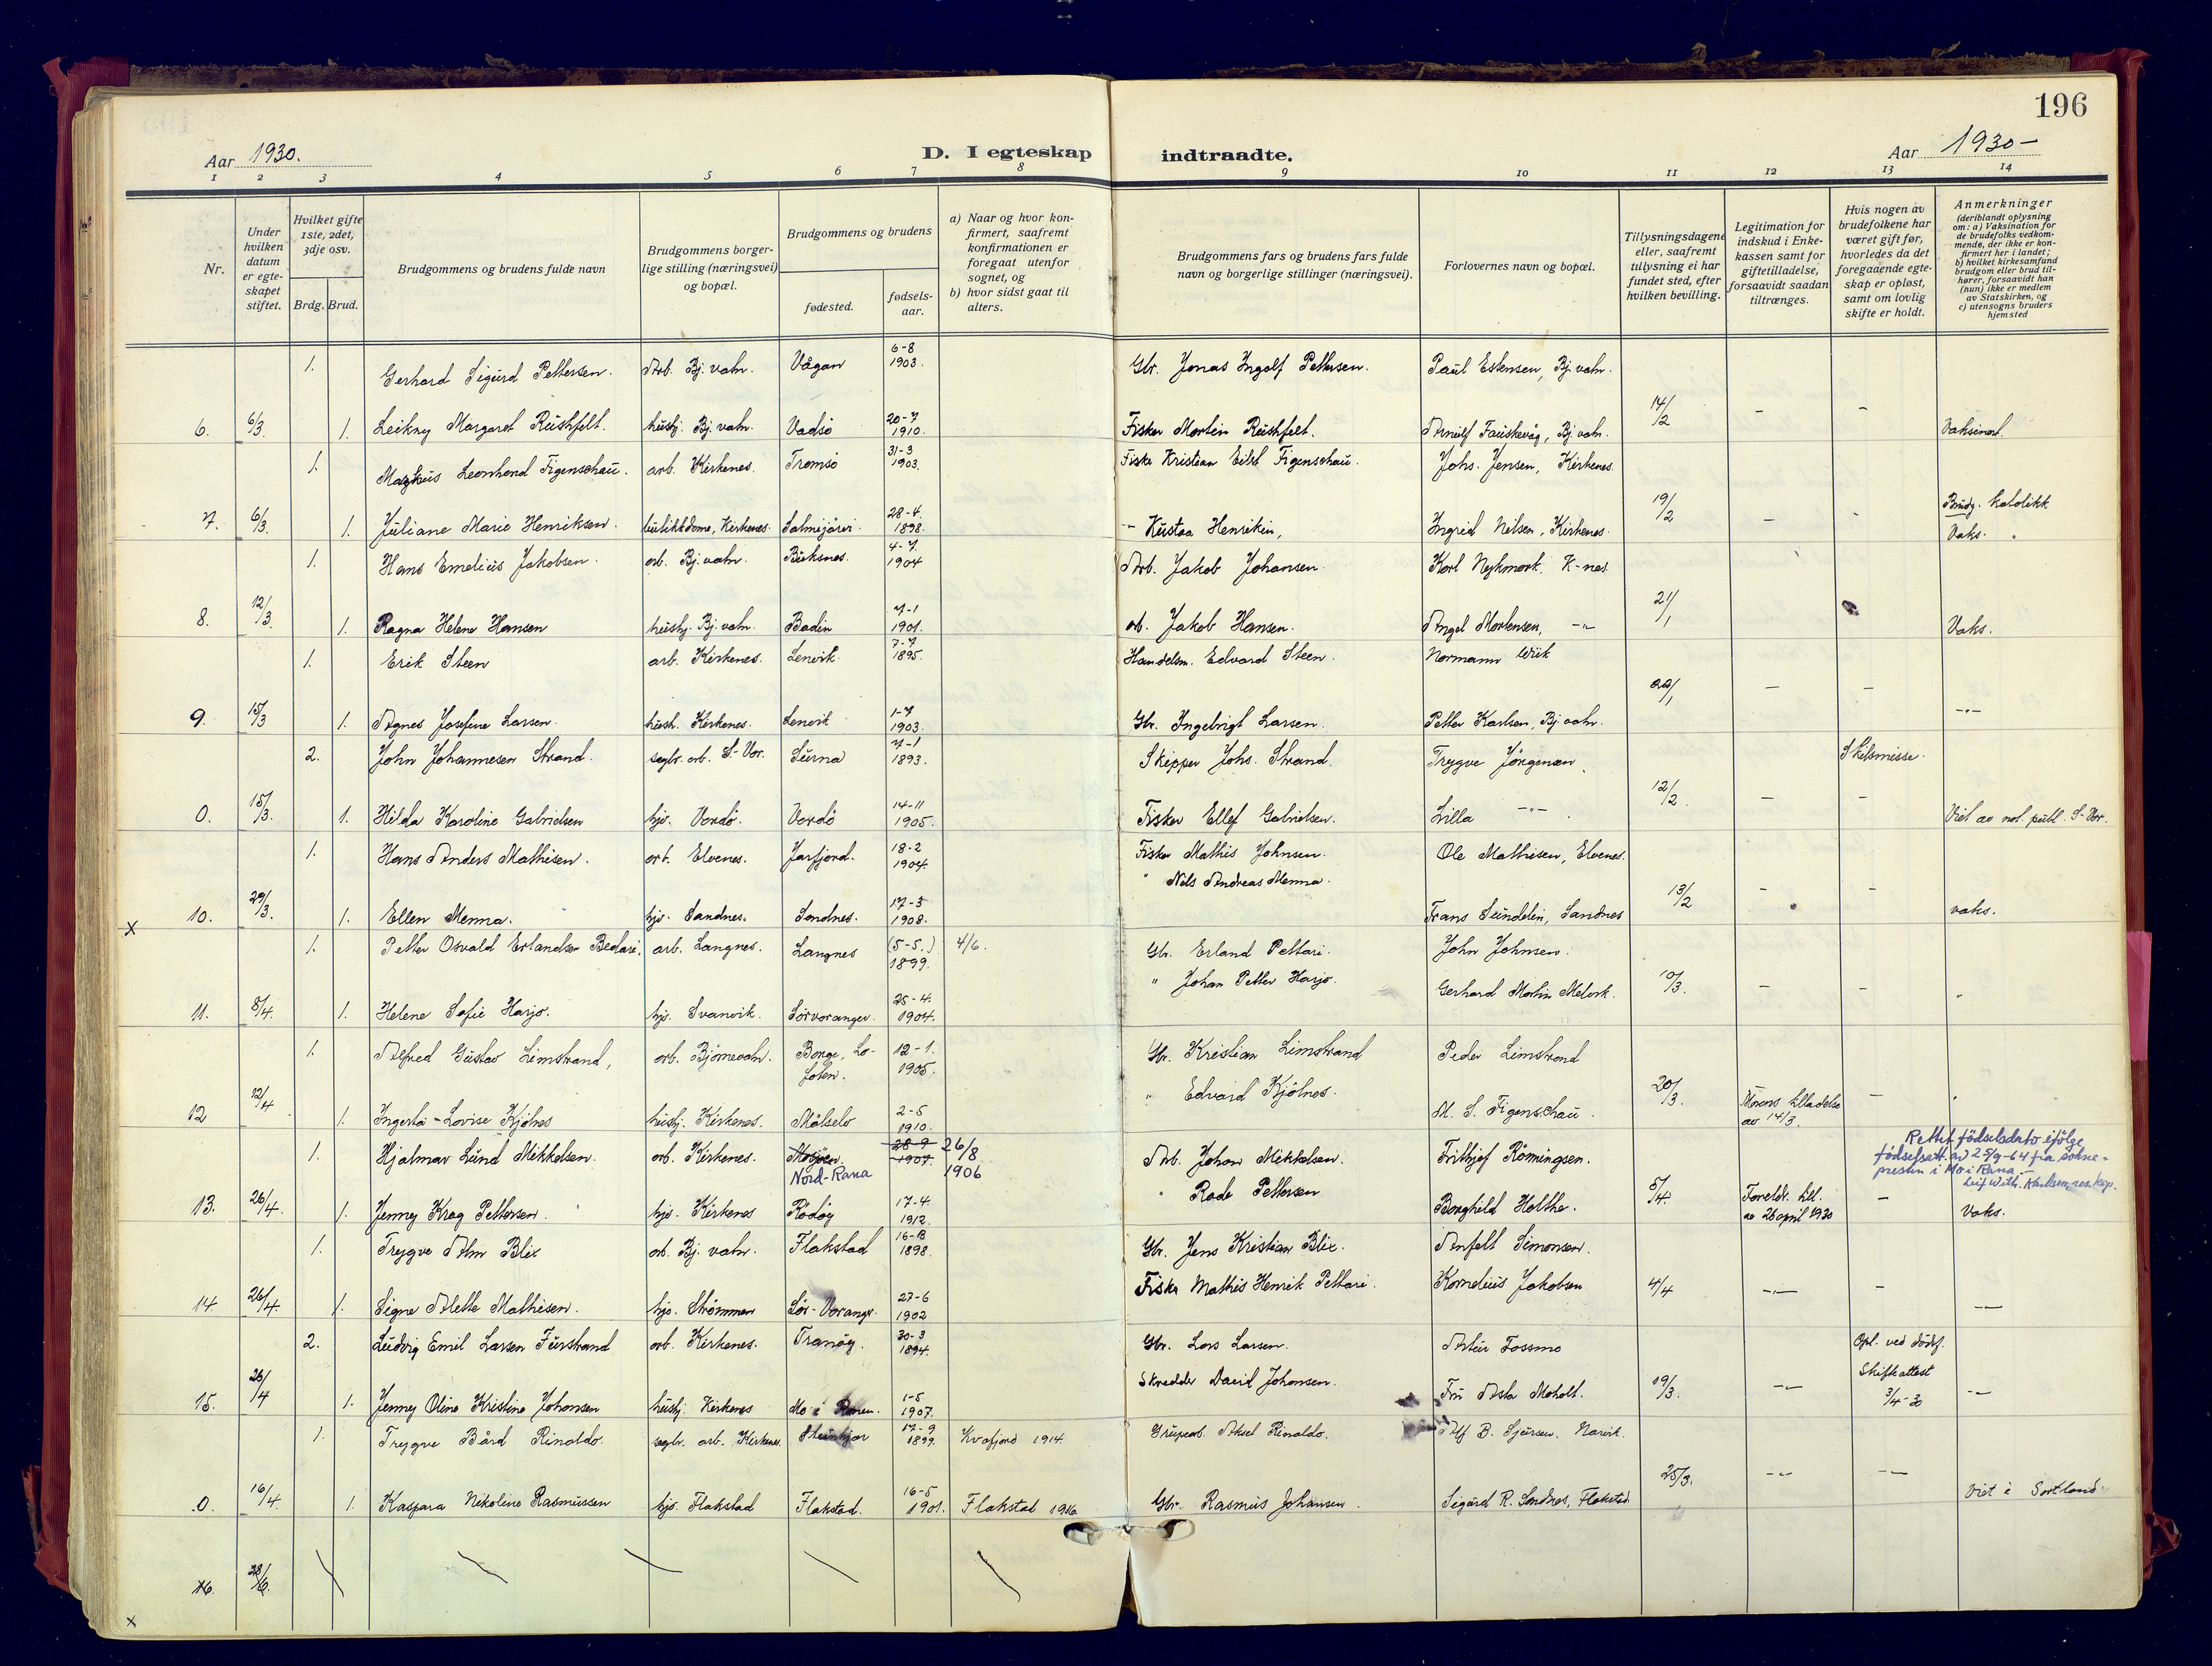 196
Aar 1930.
D. I egteskap indtraadte.
Aar 1930-
1 2 3 4 5 6 7 8 9 10 11 12 13 14
Nr.
Under hvilken datum er egteskapet stiftet.
Hvilket gifte 1ste, 2det, 3dje osv.
Brdg. Brud.
Brudgommens og brudens fulde navn
Brudgommens borgerlige stilling (næringsvei) og bopæl.
Brudgommens og brudens
fødested.
fødsels-aar.
a) Naar og hvor konfirmert, saafremt konfirmationen er foregaat utenfor sognet, og
b) hvor sidst gaat til alters.
Brudgommens fars og brudens fars fulde navn og borgerlige stillinger (næringsvei).
Forlovernes navn og bopæl.
Tillysningsdagene eller, saafremt tillysning ei har fundet sted, efter hvilken bevilling.
Legitimation for indskud i Enkekassen samt for giftetilladelse, forsaavidt saadan tiltrænges.
Hvis nogen av brudefolkene har været gift før, hvorledes da det foregaaende egteskap er opløst, samt om lovlig skifte er holdt.
Anmerkninger
(deriblandt oplysning om: a) Vaksination for de brudefolks vedkommende, der ikke er konfirmert her i landet; b) hvilket kirkesamfund brudgom eller brud tilhører, forsaavidt han (hun) ikke er medlem av Statskirken, og c) utensogns bruders hjemsted
1. Gerhard Sigurd Pettersen. Arb. Bj. vatn. Vågan 6-8 1903. Gbr. Jonas Ingolf Pettersen. Paul Estensen, Bj. vatn.
6. 6/3. 1. Leikny Margaret Rushfelt. husbj. Bj. vatn. Vadsö 20-7 1910. Fisker Mortin Rushfelt. Arnulf Fauskevåg, Bj. vatn. 14/2 - - Vaksinert.
1. Markus Leonhard Figenschau. arb. Kirkenes. Tromsö 31-3 1903. Fisker Kristian Figenschau. Johs. Jensen, Kirkenes.
7. 6/3. 1. Juliane Marie Henriksen. butikkdame, Kirkenes. Salmijärvi. 28-4. 1898. -"- Kustaa Henrikin, Ingrid Nilsen, Kirkenes. 19/2 - - Brudg. katolikk Vaks.
1. Hans Emelius Jakobsen. arb. Bj. vatn. Buksnes. 4-7. 1904 Arb. Jakob Johansen. Karl Nykmark. K-nes
8. 12/3. 1. Ragna Helene Hansen husbj. Bj. vatn. Badin 7-1 1901. arb. Jakob Hansen. Angel Mortensen, -"- 21/1 Vaks.
1. Erik Steen arb. Kirkenes. Lenvik 7-7 1895. Handelsm. Edvard Steen. Normann Wiik
9. 15/3 1. Agnes Josefine Larsen. hush. Kirkenes. Lenvik 1-7 1903. Gbr. Ingebrigt Larsen. Petter Karlsen, Bj. vatn. 22/1 - - -"-
2. John Johannesen Strand. sagbr. arb. S-Var. Surna 7-1 1893. Skipper Johs. Strand. Trygve Jörgensen Skilsmisse.
0. 15/3. 1. Hilda Karoline Gabrielsen hjv. Vardö. Vardö 14-11 1905. Fisker Ellef Gabrielsen. Lilla -"- 12/2. - - Viet av not. publ. S-Var.
1. Hans Anders Mathisen. arb. Elvenes. Jarfjord. 18-2 1904. Fisker Mathis Johnsen. Ole Mathisen, Elvenes.
x 10. 29/3. 1. Ellen Menna. hjv. Sandnes. Sandnes. 17-3 1908. " Nils Andreas Menna. Frans Sundelin, Sandnes 13/2 - - vaks.
1. Petter Osvald Erlandsen Bedari. arb. Langnes. Langnes (5-5.) 1899. 4/6. Gbr. Erland Pettari. John Johnsen.
11. 8/4. 1. Helene Sofie Harjo. hjv. Svanvik. Sörvaranger. 25-4. 1904. " Johan Petter Harjo. Gerhard Martin Melvik. 10/3. - - "
1. Alfred Gustav Limstrand, arb. Björnevatn. Borge, Lofoten. 12-1. 1905. Gbr. Kristian Limstrand Peder Limstrand
12 12/4 1. Ingerta-Lovise Kjölnes husbj. Kirkenes. Målselv 2-5 1910. " Edvard Kjölnes. M. S. Figenschau. 20/3. Morens tilladelse av 14/3. - "
1. Hjalmar Lund Mikkelsen. arb. Kirkenes. Mosjöen. Nord-Rana 28-9 1907. 26/8 1906 Arb. Johan Mikkelsen. Frithjof Römingsen. Rettet födselsdato ifölge födselsatt. av 25/9-64 fra soknepresten i Mo i Rana. - Leif With. Karlsen, res. kap.
13. 26/4. 1. Jenny Krag Pettersen. hjv. Kirkenes Rödöy 17-4. 1912. " Rade Pettersen Borghild Holthe. 5/4 Foreldr. till. av 26 april 1930 - Vaks.
1. Trygve Alm Blix arb. Bj. vatn. Flakstad 1898. Gbr. Jens Kristian Blix. Anfelt Simonsen.
14 26/4. 1. Signe Alette Mathisen. hjv. Strömmen Sör-Varanger. 27-6 1902 Fisker Mathis Henrik Pettari. Kornelius Jakobsen 4/4 -"- - -"-
2. Ludvig Emil Larsen Furstrand arb. Kirkenes. Tranöy. 30-3 1894. Gbr. Lars Larsen. Artur Fossmo Opl. ved dödsf.
15. 26/4 1. Jenny Oline Kristine Johansen husbj. Kirkenes Mo i Ranen. 1-5 1907. Skredder David Johansen. Fru Asta Moholt. 19/3. -"- Skifteattest 3/4-30 -"-
1. Trygve Bård Rinaldo. sagbr. arb. Kirkenes. Steinkjer 17-9 1899. Kvafjord 1914. Grubearb. Aksel Rinaldo. Alf B. Sjursen. Narvik.
0. 16/4. 1. Kaspara Nikoline Rasmussen hjv. Flakstad Flakstad. 16-5 1901. Flakstad 1916 Gbr. Rasmus Johansen. Sigurd R. Sandnes, Flakstad. 25/3. -"- -"- Viet i Sortland.
16. 28/6.
x